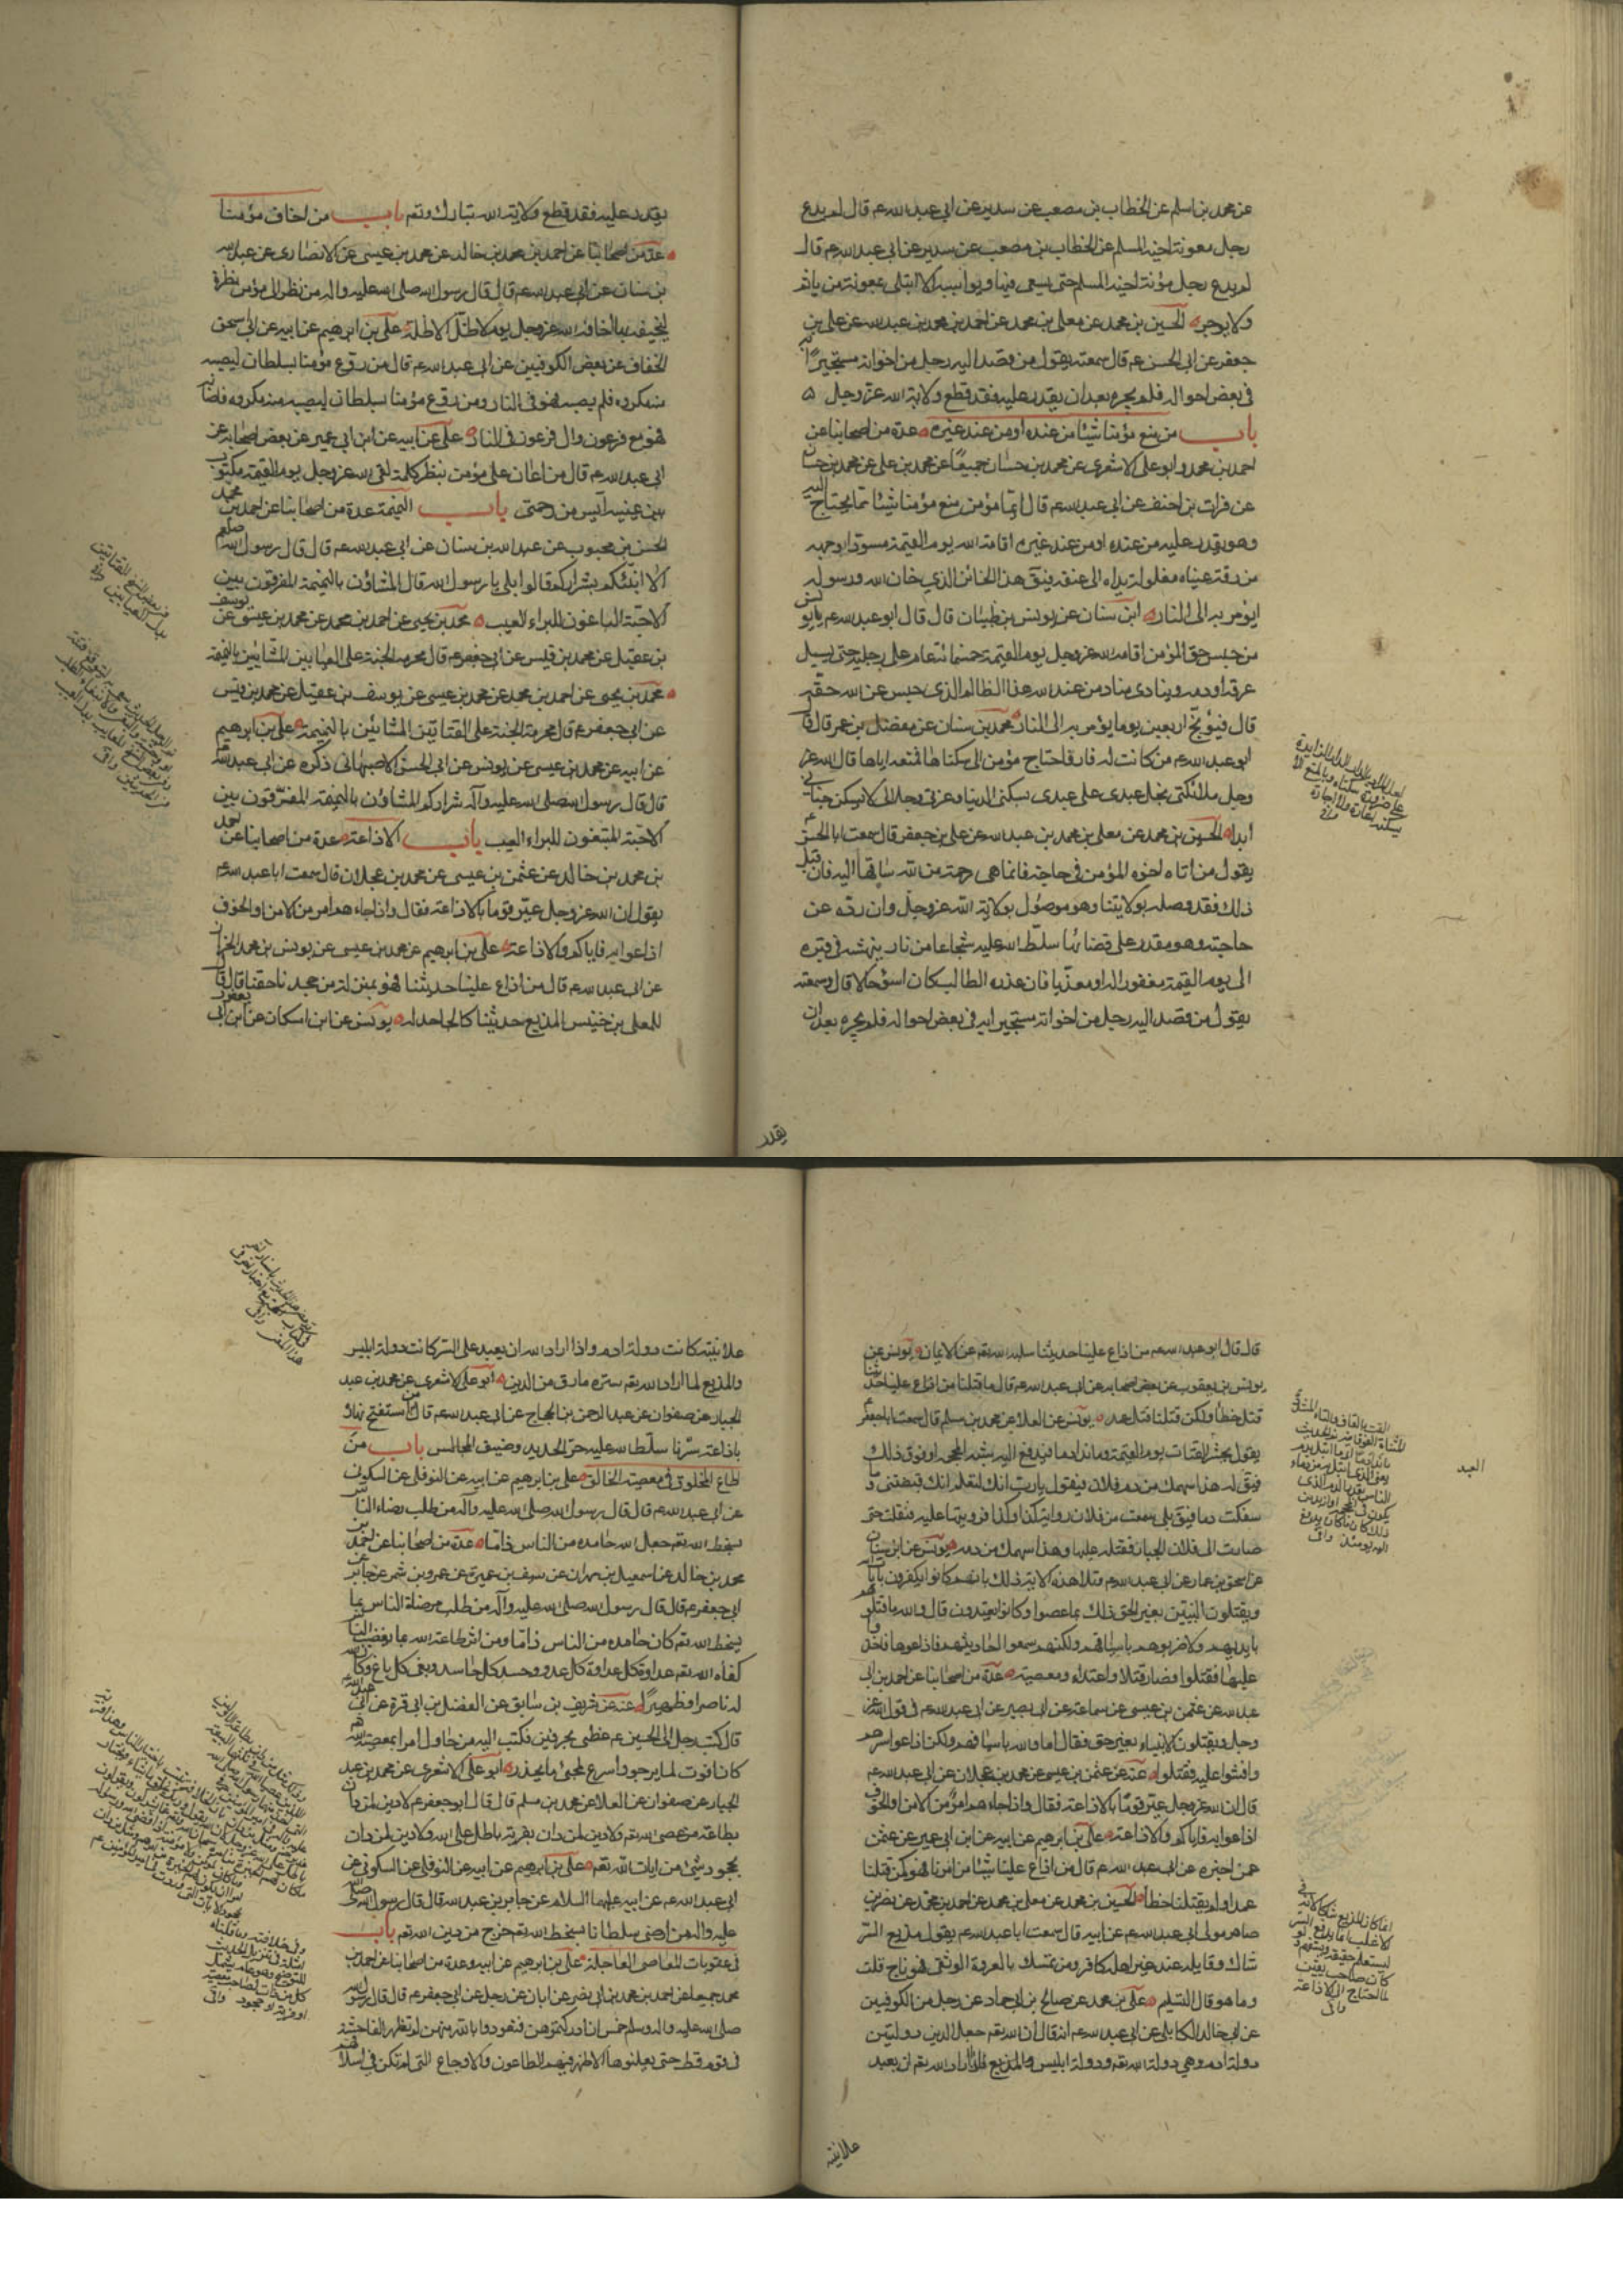 عن محمد بن اسلم عن الخطاب بن مصعب عن سدير عن ابي عبد الله ع م قال لم يدع
رجل معونة اخيه المسلم عن الخطاب بن مصعب عن سدير عن ابي عبد الله ع م قال
لم يدع رجل مؤنة اخيه المسلم حتى يسعى فيها ويواسيه الا ابتلى بمعونة من ياثم
ولا يوجر الحسين بن محمد عن معلى بن محمد عن احمد بن محمد بن عبد الله عن علي بن
جعفر عن ابي الحسن ع م قال سمعته يقول من قصد اليه رجل من اخوانه مستجيرا به
في بعض احواله فلم يجره بعد ان يقدر عليه فقد قطع ولاية الله عز وجل
باب من منع مؤمنا شيئا من عنده او من عند غيره عدة من اصحابنا عن
احمد بن محمد وابو علي الاشعري عن محمد بن حسان جميعا عن محمد بن علي عن محمد بن سنان
عن فرات بن احنف عن ابي عبد الله ع م قال ايما مؤمن منع مؤمنا شيئا مما يحتاج اليه
وهو يقدر عليه من عنده او من عند غيره اقامه الله يوم القيمة مسودا وجهه
مزرقة عيناه مغلولة يداه الى عنقه فيق هذا الخائن الذي خان الله ورسوله
ثم يؤمر به الى النار ابن سنان عن يونس بن ظبيان قال قال ابو عبد الله ع م يا يونس
من حبس حق المؤمن اقامه الله عز وجل يوم القيمة خمسمائة عام على رجليه حتى يسيل
عرقه او دمه وينادى مناد من عند الله هذا الظالم الذي حبس عن الله حقه
قال فيوبخ اربعين يوما ثم يؤمر به الى النار محمد بن سنان عن مفضل بن عمر قال قال
ابو عبد الله ع م من كانت له دار فاحتاج مؤمن الى سكناها فمنعه اياها قال الله عز
وجل ملائكتي بخل عبدي على عبدي بسكنى الدنيا وعزتي وجلالي لا يسكن جناني
ابدا الحسين بن محمد عن معلى بن محمد عن احمد بن عبد الله عن علي بن جعفر قال سمعت ابا الحسن ع م
يقول من اتاه اخوه المؤمن في حاجة فانما هي رحمة من الله ساقها اليه فان قبل
ذلك فقد وصله بولايتنا وهو موصول بولاية الله عز وجل وان رده عن
حاجته وهو مقدر على قضائها سلط الله عليه شجاعا من نار ينهشه في قبره
الى يوم القيمة مغفور له او معذبا فان عذره الطالب كان اسوء حالا قال وسمعته
يقول من قصد اليه رجل من اخوانه مستجيرا به في بعض احواله فلم يجره بعد ان
يقدر
يقدر عليه فقد قطع ولاية الله تبارك وتعم باب من اخاف مؤمنا
عدة من اصحابنا عن احمد بن محمد بن خالد عن محمد بن عيسى عن الانصاري عن عبد الله
بن سنان عن ابي عبد الله ع م قال قال رسول الله صلى الله عليه واله من نظر الى مؤمن نظرة
ليخيفه بها اخافه الله عز وجل يوم لا ظل الا ظله علي بن ابرهيم عن ابيه عن ابي اسحق
الخفاف عن بعض الكوفيين عن ابي عبد الله ع م قال من روع مؤمنا بسلطان ليصيبه
منه مكروه فلم يصبه فهو في النار ومن روع مؤمنا بسلطان ليصيبه منه مكروه فاصابه
فهو مع فرعون وال فرعون في النار علي عن ابيه عن ابن ابي عمير عن بعض اصحابه عن
ابي عبد الله ع م قال من اعان على مؤمن بشطر كلمة لقى الله عز وجل يوم القيمة مكتوب
بين عينيه آيس من رحمتي باب النميمة عدة من اصحابنا عن احمد بن محمد
الحسن بن محبوب عن عبد الله بن سنان عن ابي عبد الله ع م قال قال رسول الله صلعم
الا انبئكم بشراركم قالوا بلى يا رسول الله قال المشاؤن بالنميمة المفرقون بين
الاحبة الباغون للبراء العيب محمد بن يحيى عن احمد بن محمد عن محمد بن عيسى عن يوسف
بن عقيل عن محمد بن قيس عن ابي جعفر ع م قال محرمة الجنة على العيابين المشائين بالنميمة
محمد بن يحيى عن احمد بن محمد عن محمد بن عيسى عن يوسف بن عقيل عن محمد بن قيس
عن ابي جعفر ع م قال محرمة الجنة على القتاتين المشائين بالنميمة علي بن ابرهيم
عن ابيه عن محمد بن عيسى عن يونس عن ابي الحسن الاصبهاني ذكره عن ابي عبد الله ع م
قال قال رسول الله صلى الله عليه وآله شراركم المشاؤن بالنميمة المفرقون بين
الاحبة المبتغون للبراء العيب باب الاذاعة عدة من اصحابنا عن احمد
بن محمد بن خالد عن عثمن بن عيسى عن محمد بن عجلان قال سمعت ابا عبد الله ع م
يقول ان الله عز وجل عير قوما بالاذاعة فقال واذا جاءهم امر من الامن او الخوف
اذاعوا به فاياكم والاذاعة علي بن ابرهيم عن محمد بن عيسى عن يونس بن محمد الخزاز
عن ابي عبد الله ع م قال من اذاع علينا حديثنا فهو بمنزلة من جحدنا حقنا قال قال
للمعلى بن خنيس المذيع حديثنا كالجاحد له يونس عن ابن مسكان عن ابن ابي يعفور
قال قال ابو عبد الله ع م من اذاع علينا حديثنا سلبه الله تعم عن الايمان يونس عن
يونس بن يعقوب عن بعض اصحابه عن ابي عبد الله ع م قال ما قتلنا من اذاع علينا حديثنا
قتل خطأ ولكن قتلنا قتل عمد يونس عن العلا عن محمد بن مسلم قال سمعت ابا جعفر ع م
يقول يحشر العبد يوم القيمة وما ندا دما فيدفع اليه شبه المحجمة او فوق ذلك
فيق له هذا سهمك من دم فلان فيقول يا رب انك لتعلم انك قبضتني وما
سفكت دما فيق بلى سمعت من فلان رواية كذا وكذا فرويتها عليه فنقلت حتى
صارت الى فلان الجبار فقتله عليها وهذا سهمك من دمه يونس عن ابن سنان
عن اسحق بن عمار عن ابي عبد الله ع م وتلا هذه الاية ذلك بانهم كانوا يكفرون بايات الله
ويقتلون النبيين بغير الحق ذلك بما عصوا وكانوا يعتدون قال والله ما قتلوهم
بايديهم ولا ضربوهم باسيافهم ولكنهم سمعوا احاديثهم فاذاعوها فاخذوا
عليها فقتلوا فصار قتلا واعتداء ومعصية عدة من اصحابنا عن احمد بن ابي
عبد الله عن عثمن بن عيسى عن سماعة عن ابي بصير عن ابي عبد الله ع م في قول الله عز
وجل ويقتلون الانبياء بغير حق فقال اما والله باسيافهم ولكن اذاعوا سرهم
وافشوا عليهم فقتلوا عنه عن عثمن بن عيسى عن محمد بن عجلان عن ابي عبد الله ع م
قال ان الله عز وجل عير قوما بالاذاعة فقال واذا جاءهم امر من الامن او الخوف
اذاعوا به فاياكم والاذاعة علي بن ابرهيم عن ابيه عن ابن ابي عمير عن عثمن
عمن اخبره عن ابي عبد الله ع م قال من اذاع علينا شيئا من امرنا فهو كمن قتلنا
عمدا ولم يقتلنا خطأ الحسين بن محمد عن معلى بن محمد عن احمد بن محمد عن نصر بن
صاعد مولى ابي عبد الله ع م عن ابيه قال سمعت ابا عبد الله ع م يقول مذيع السر
شاك وقايله عند غير اهله كافر ومن تمسك بالعروة الوثقى فهو ناج قلت
وما هو قال التسليم علي بن محمد عن صالح بن ابي حماد عن رجل من الكوفيين
عن ابي خالد الكابلي عن ابي عبد الله ع م انه قال ان الله تعم جعل الدين دولتين
دولة ادم وهي دولة الله تعم ودولة ابليس والمذيع لما اراد الله تعم ان يعبد
علانية
العبد
علانية كانت دولة ادم واذا اراد الله ان يعبد في السر كانت دولة ابليس
والمذيع لما اراد الله تعم ستره مارق من الدين ابو علي الاشعري عن محمد بن عبد
الجبار عن صفوان عن عبد الرحمن بن الحجاج عن ابي عبد الله ع م قال من استفتح نهاره
باذاعة سرنا سلط الله عليه حر الحديد وضيق المجالس باب من
اطاع المخلوق في معصية الخالق علي بن ابرهيم عن ابيه عن النوفلي عن السكوني
عن ابي عبد الله ع م قال قال رسول الله صلى الله عليه وآله من طلب رضاء الناس
بسخط الله تعم جعل الله حامده من الناس ذاما عدة من اصحابنا عن احمد بن
محمد بن خالد عن اسمعيل بن مهران عن سيف بن عميرة عن عمرو بن شمر عن جابر عن
ابي جعفر ع م قال قال رسول الله صلى الله عليه وآله من طلب مرضاة الناس بما
يسخط الله تعم كان حامده من الناس ذاما ومن اثر طاعة الله بما يغضب الناس
كفاه الله تعم عداوة كل عدو وحسد كل حاسد وبغى كل باغ وكان الله
له ناصرا وظهيرا عنه عن شريف بن سابق عن الفضل بن ابي قرة عن ابي عبد الله ع م
قال كتب رجل الى الحسين ع م عظني بحرفين فكتب اليه من حاول امرا بمعصية الله
كان افوت لما يرجو واسرع لمجئ ما يحذر ابو علي الاشعري عن محمد بن عبد
الجبار عن صفوان عن العلا عن محمد بن مسلم قال قال ابو جعفر ع م لا دين لمن دان
بطاعة من عصى الله تعم ولا دين لمن دان بفرية باطل على الله ولا دين لمن دان
بجحود شئ من ايات الله تعم علي بن ابرهيم عن ابيه عن النوفلي عن السكوني عن
ابي عبد الله ع م عن ابيه عليهما السلام عن جابر بن عبد الله قال قال رسول الله صلى الله
عليه واله من ارضى سلطانا بسخط الله تعم خرج من دين الله تعم باب
في عقوبات المعاصي العاجلة علي بن ابرهيم عن ابيه وعدة من اصحابنا عن احمد بن
محمد جميعا عن احمد بن محمد بن ابي نصر عن ابان عن رجل عن ابي جعفر ع م قال قال رسول الله
صلى الله عليه واله وسلم خمس ان ادركتموهن فتعوذوا بالله منهن لم تظهر الفاحشة
في قوم قط حتى يعلنوها الا ظهر فيهم الطاعون والاوجاع التي لم تكن في اسلافهم